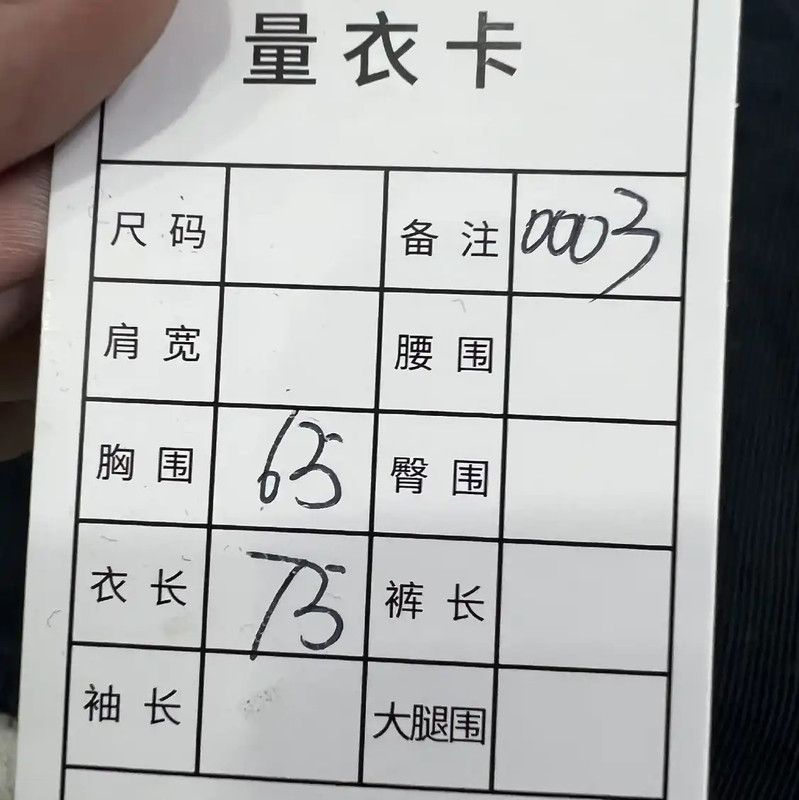 量衣卡
尺码 备注 0003
肩宽 腰围
胸围 65 臀围
衣长 75 裤长
袖长 大腿围